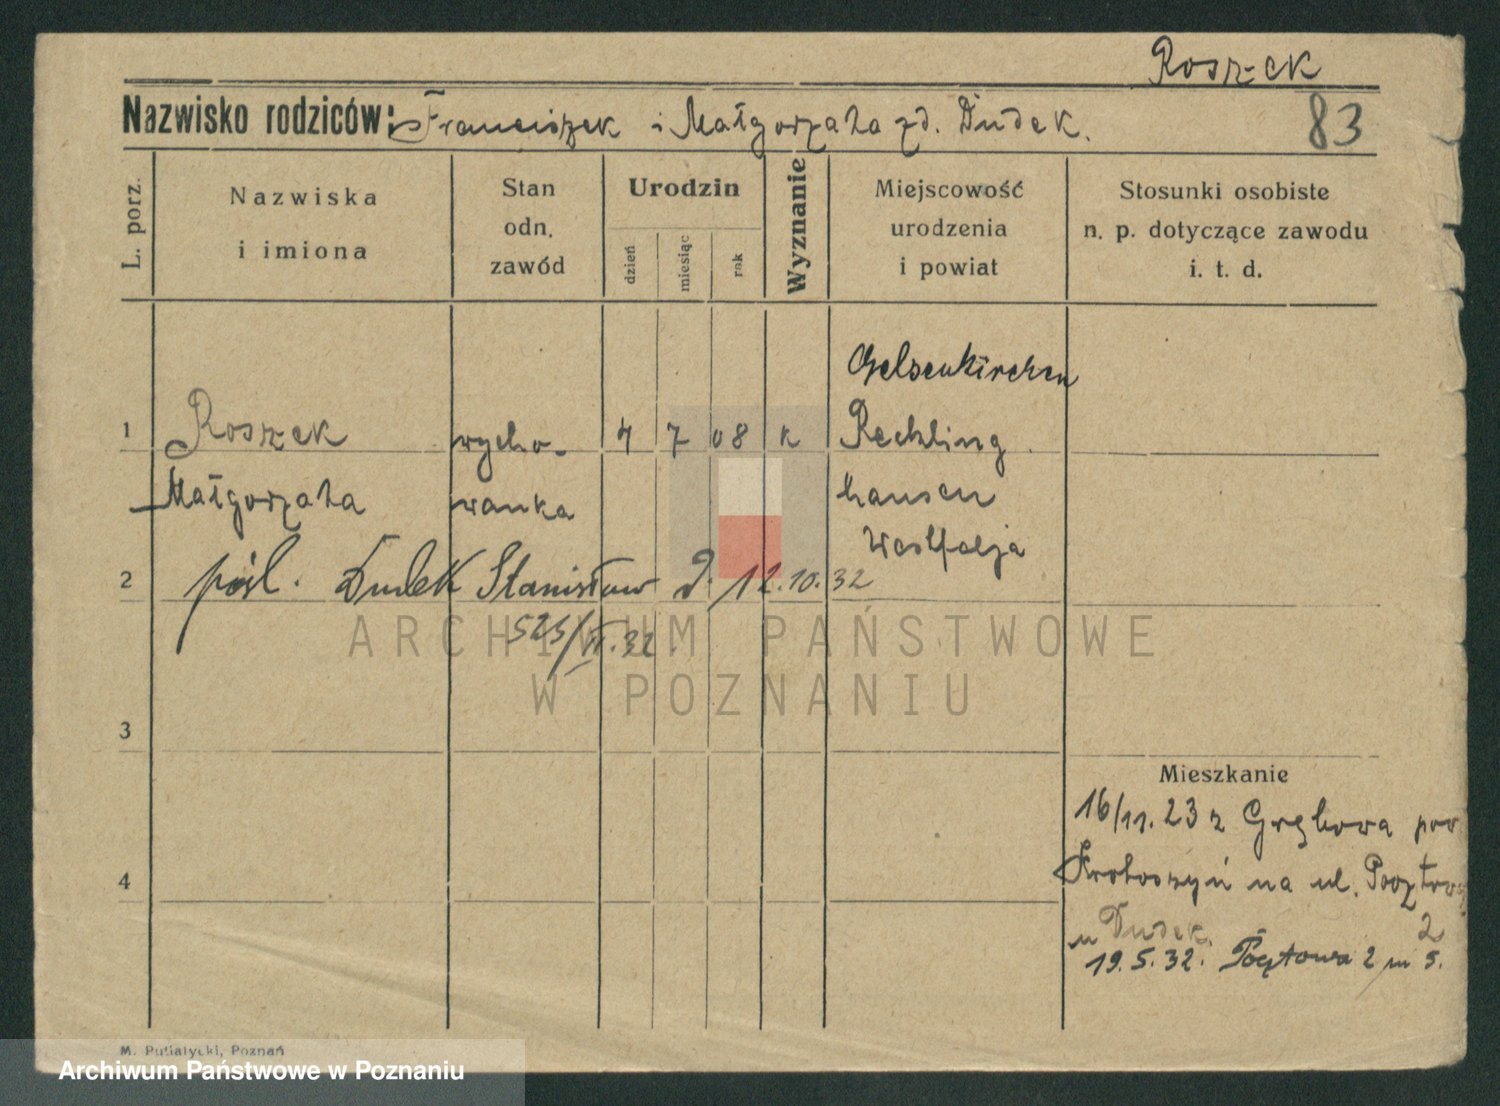 Roszek
Nazwisko rodziców: Franciszek i Małgorzata zd. Dudek.
83
L. porz.
Nazwiska
i imiona
Stan
odn.
zawód
Urodzin
dzień
miesiąc
rok
Wyznanie
Miejscowość
urodzenia
i powiat
Stosunki osobiste
n. p. dotyczące zawodu
i. t. d.
Gelsenkirchen
1 Roszek wycho- 4 7 08 k Reckling
Małgorzata wanka hausen
Westfalja
2 pośl. Dudek Stanisław d. 12.10.32
525/II.32
ARCHIWUM PAŃSTWOWE
W POZNANIU
3
Mieszkanie
16/11.23 z Grębowa pow
4 Krotoszyń na ul. Pocztowa
u Dudek. 2
19.5.32. Pocztowa 2 m 5.
M. Putiatycki, Poznań
Archiwum Państwowe w Poznaniu